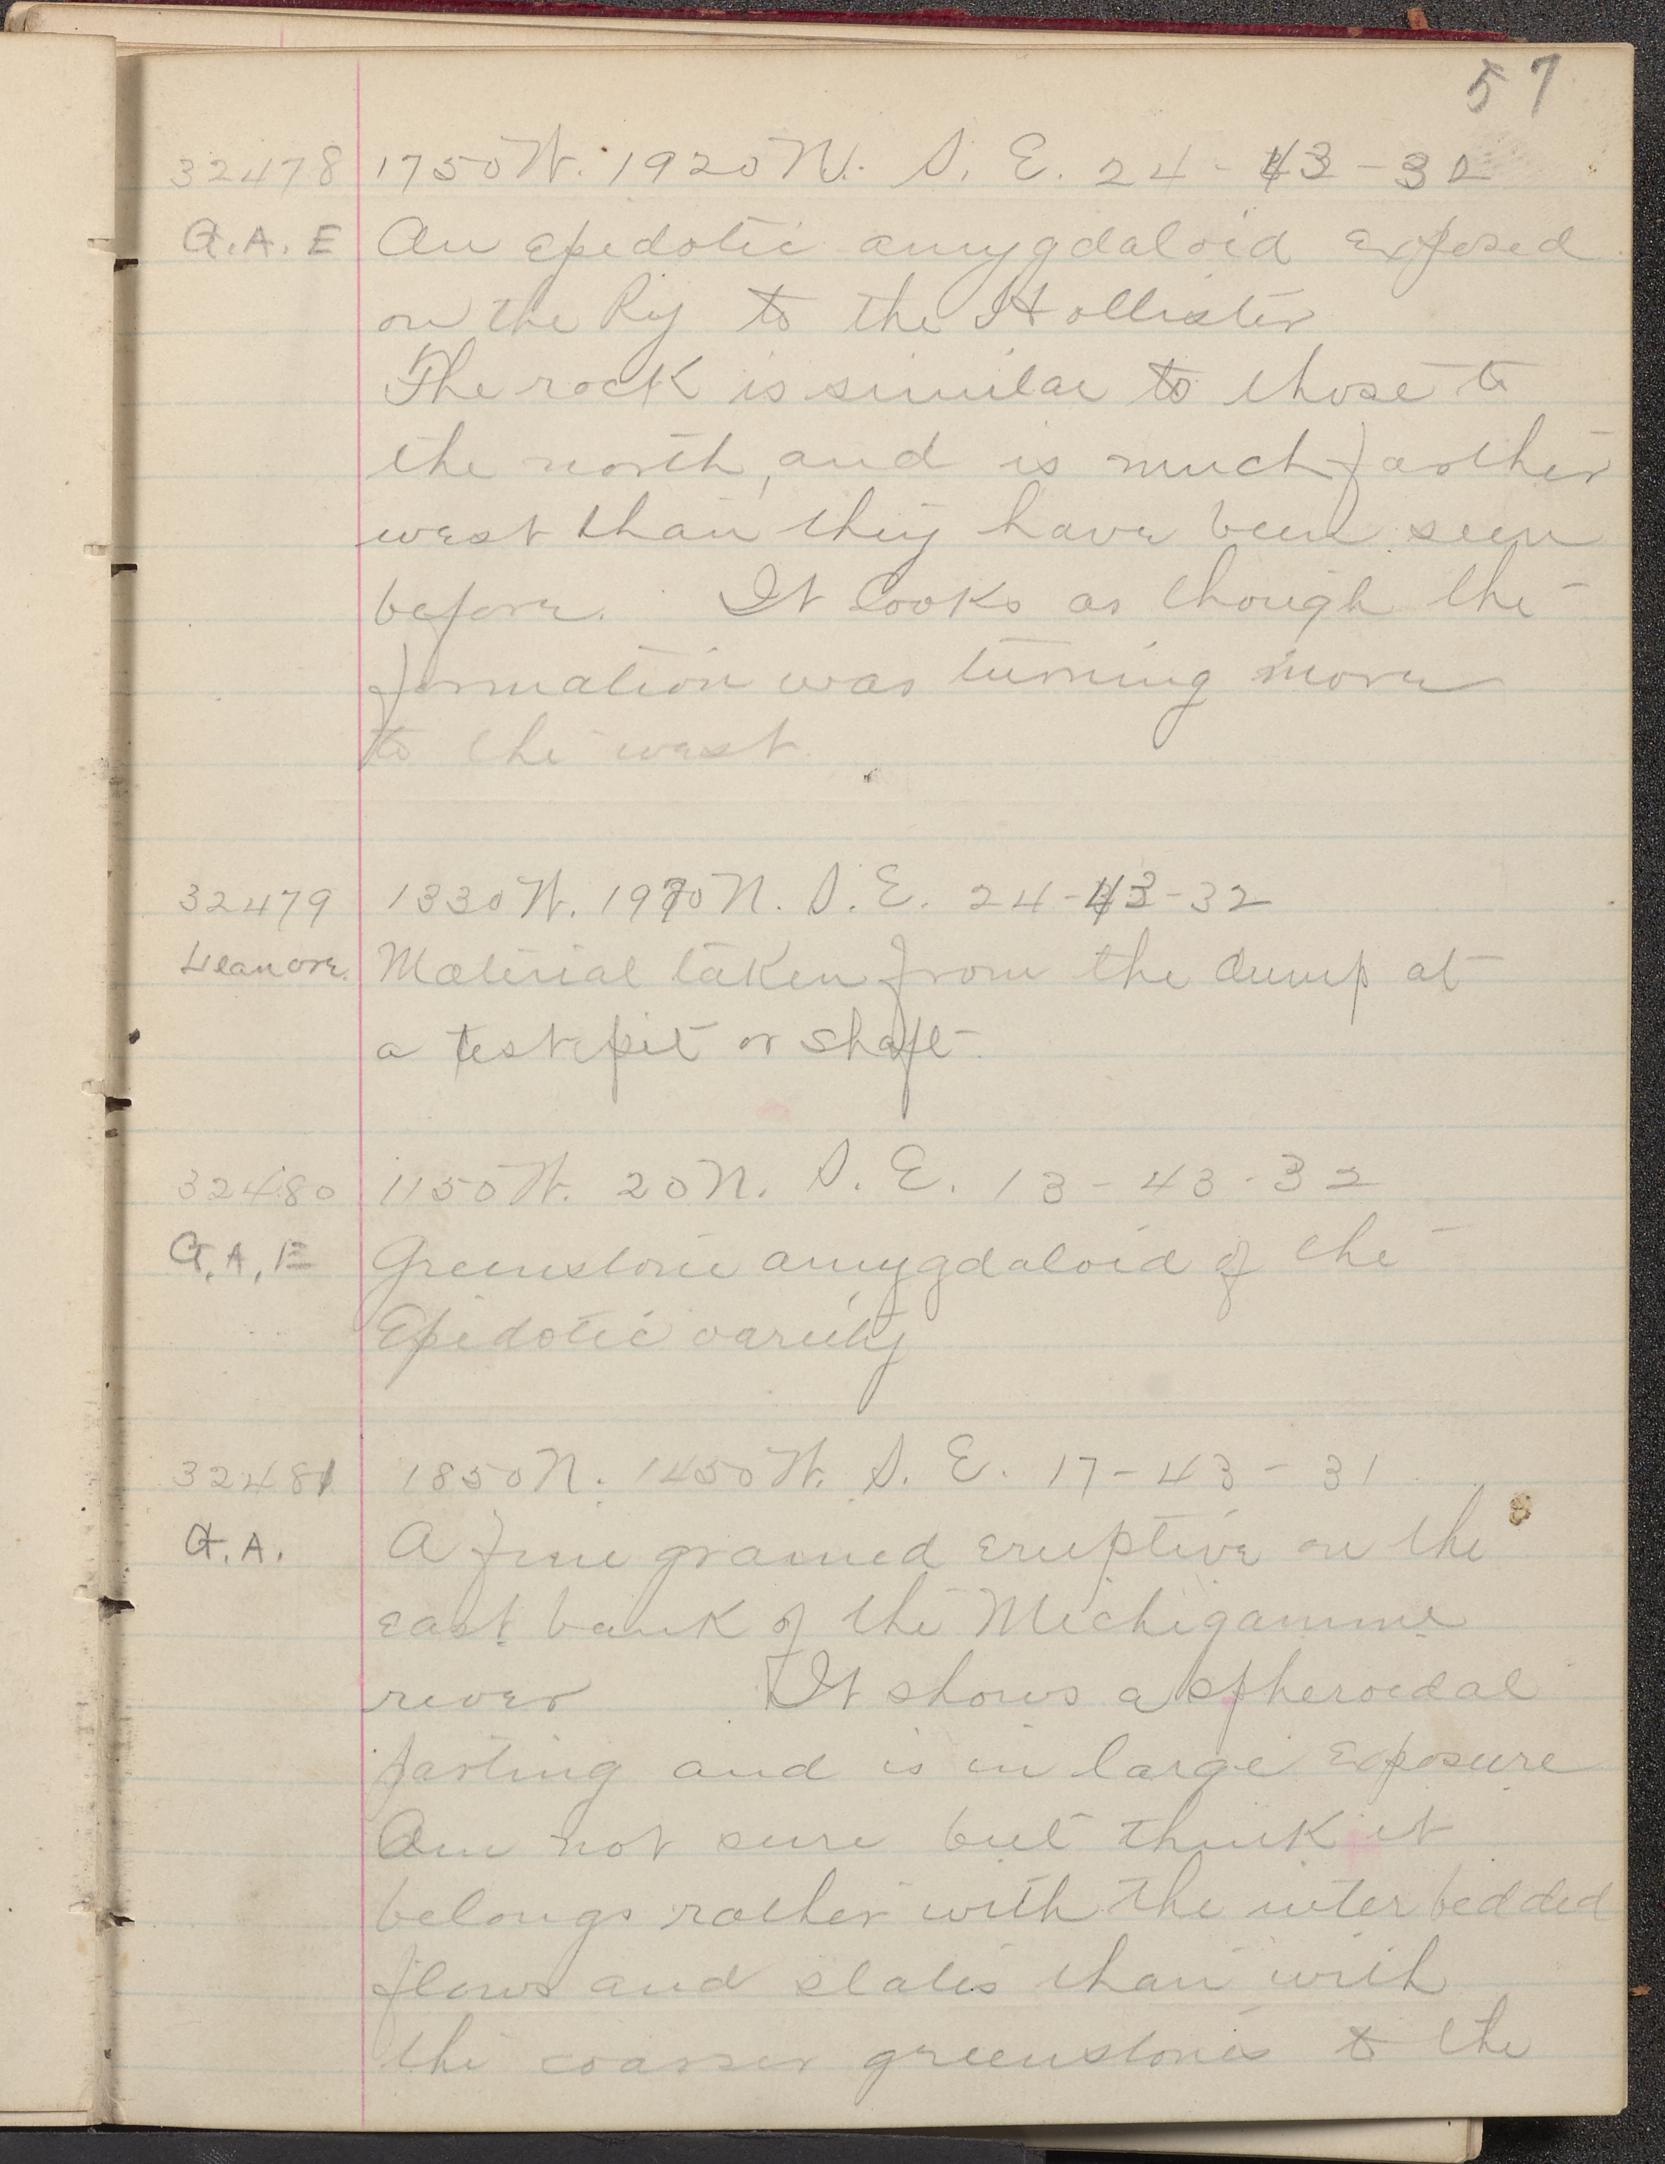 57
32478 1750 W. 1920 N. S. E. 24-43-32
G.A.E An epidotic amygdaloid exposed
on the Ry to the Hollister
The rock is similar to those to
the north, and is much farther
west than they have been seen
before. It looks as though the
formation was turning more
to the west.
32479 1330 W. 1970 N. S. E. 24-43-32
Material taken from the dump at
a test pit or shaft.
32480 1150 W. 20 N. S. E. 13-43-32
G.A.E Greenstone amygdaloid of the
Epidotic variety
32481 1850 N. 1450 W. S. E. 17-43-31
G.A. A fine grained eruptive on the
east bank of the Michigamme
river It shows a spheroidal
parting and is in large exposure
Am not sure but think it
belongs rather with the inter bedded
flows and slates than with
the coarser greenstones to the